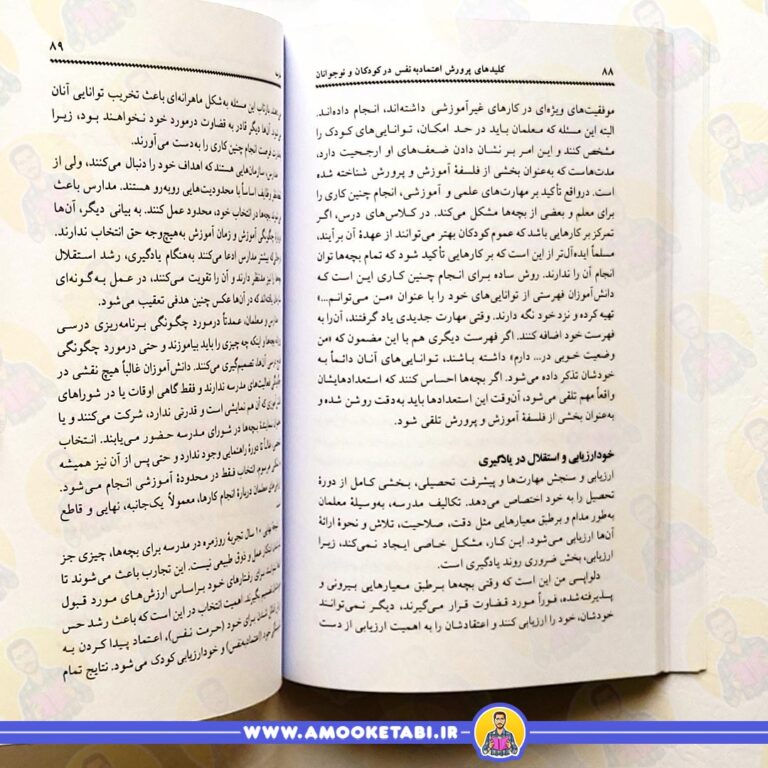 ۸۸
کلیدهای پرورش اعتمادبه‌نفس در کودکان و نوجوانان
موفقیت‌های ویژه‌ای در کارهای غیرآموزشی داشته‌اند، انجام داده‌اند.
البته این مسئله که معلمان باید در حد امکان، توانایی‌های کودک را
مشخص کنند و این امر بر نشان دادن ضعف‌های او ارجحیت دارد،
مدت‌هاست که به‌عنوان بخشی از فلسفهٔ آموزش و پرورش شناخته شده
است. درواقع تأکید بر مهارت‌های علمی و آموزشی، انجام چنین کاری را
برای معلم و بعضی از بچه‌ها مشکل می‌کند. در کلاس‌های درس، اگر
تمرکز بر کارهایی باشد که عموم کودکان بهتر می‌توانند از عهدهٔ آن برآیند،
مسلماً ایده‌آل‌تر از این است که بر کارهایی تأکید شود که تمام بچه‌ها توان
انجام آن را ندارند. روش ساده برای انجام چنین کاری این است که
دانش‌آموزان فهرستی از توانایی‌های خود را با عنوان «من می‌توانم...»
تهیه کرده و نزد خود نگه دارند. وقتی مهارت جدیدی یاد گرفتند، آن‌را به
فهرست خود اضافه کنند. اگر فهرست دیگری هم با این مضمون که «من
وضعیت خوبی در... دارم» داشته باشند، توانایی‌های آنان دائماً به
خودشان تذکر داده می‌شود. اگر بچه‌ها احساس کنند که استعدادهایشان
واقعاً مهم تلقی می‌شود، آن‌وقت این استعدادها باید به‌دقت روشن شده و
به‌عنوان بخشی از فلسفهٔ آموزش و پرورش تلقی شود.
خودارزیابی و استقلال در یادگیری
ارزیابی و سنجش مهارت‌ها و پیشرفت تحصیلی، بخشی کامل از دورهٔ
تحصیل را به خود اختصاص می‌دهد. تکالیف مدرسه، به‌وسیلهٔ معلمان
به‌طور مدام و برطبق معیارهایی مثل دقت، صلاحیت، تلاش و نحوهٔ ارائهٔ
آن‌ها ارزیابی می‌شود. این کار، مشکل خاصی ایجاد نمی‌کند، زیرا
ارزیابی، بخش ضروری روند یادگیری است.
دلواپسی من این است که وقتی بچه‌ها برطبق معیارهایی بیرونی و
پذیرفته‌شده، فوراً مورد قضاوت قرار می‌گیرند، دیگر نمی‌توانند
خودشان، خود را ارزیابی کنند و اعتقادشان را به اهمیت ارزیابی از دست
۸۹
بازتاب این مسئله به‌شکل ماهرانه‌ای باعث تخریب توانایی آنان
آن‌ها دیگر قادر به قضاوت درمورد خود نخواهند بود، زیرا
فرصت انجام چنین کاری را به‌دست می‌آورند.
سازمان‌هایی هستند که اهداف خود را دنبال می‌کنند، ولی از
وظایف اساساً با محدودیت‌هایی روبه‌رو هستند. مدارس باعث
بچه‌ها در انتخاب خود، محدود عمل کنند. به بیانی دیگر، آن‌ها
چگونگی آموزش و زمان آموزش به‌هیچ‌وجه حق انتخاب ندارند.
که بیشتر مدارس ادعا می‌کنند به‌هنگام یادگیری، رشد استقلال
را نیز مدنظر دارند و آن را تقویت می‌کنند، در عمل به گونه‌ای
که در آن‌ها عکس چنین هدفی تعقیب می‌شود.
و معلمان، عمدتاً درمورد چگونگی برنامه‌ریزی درسی
و اینکه چه چیزی را باید بیاموزند و حتی درمورد چگونگی
آن‌ها، تصمیم‌گیری می‌کنند. دانش‌آموزان غالباً هیچ نقشی در
فعالیت‌های مدرسه ندارند و فقط گاهی اوقات یا در شوراهای
که آن هم نمایشی است و قدرتی ندارد، شرکت می‌کنند و یا
نمایندهٔ بچه‌ها در شورای مدرسه حضور می‌یابند. انتخاب
غالباً تا دورهٔ راهنمایی وجود ندارد و حتی پس از آن نیز همیشه
انتخاب فقط در محدودهٔ آموزشی انجام می‌شود.
معلمان دربارهٔ انجام کارها، معمولاً یک‌جانبه، نهایی و قاطع
۱۰ سال تجربهٔ روزمره در مدرسه برای بچه‌ها، چیزی جز
عمل و ذوق طبیعی نیست. این تجارب باعث می‌شوند تا
برای رفتارهای خود براساس ارزش‌های مورد قبول
بگیرند. اهمیت انتخاب در این است که باعث رشد حس
برای خود (حرمت نفس)، اعتماد پیدا کردن به
(اعتمادبه‌نفس) و خودارزیابی کودک می‌شود. نتایج تمام
WWW.AMOOKETABI.IR